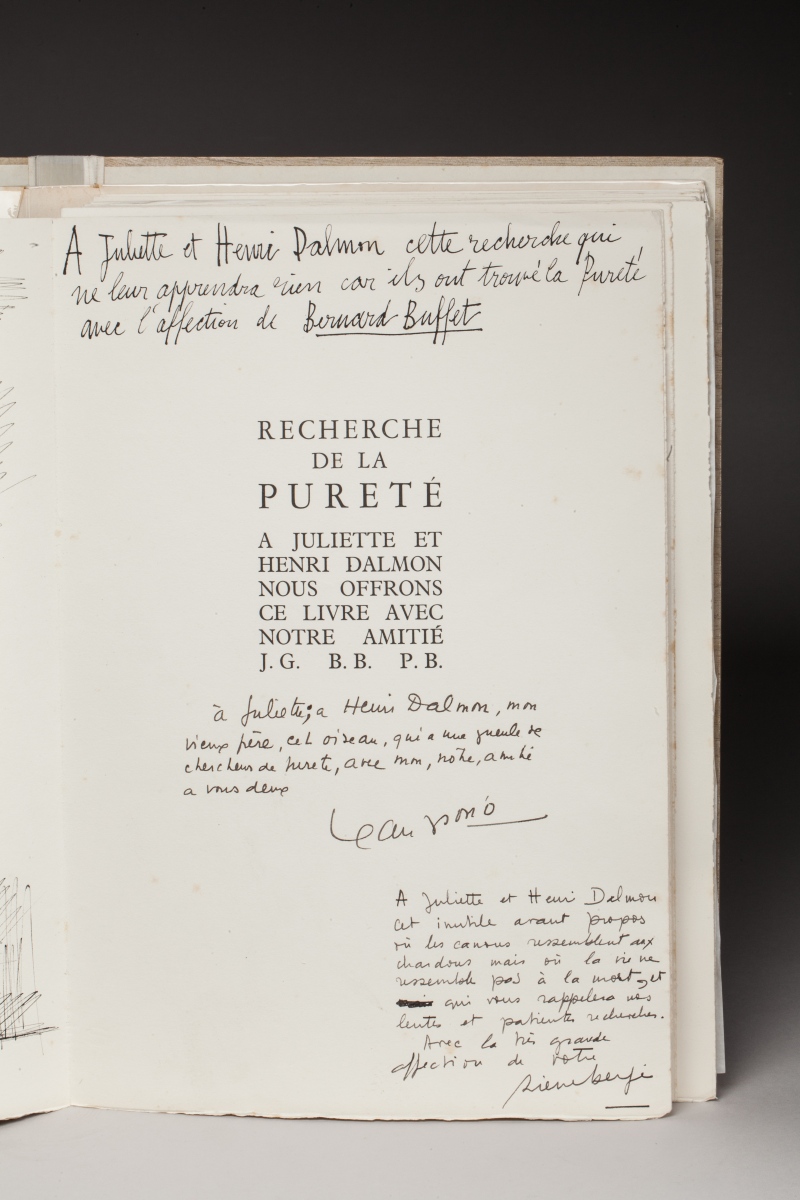 A Juliette et Henri Dalmon cette recherche qui
ne leur apprendra rien car ils ont trouvé la Pureté,
avec l'affection de Bernard Buffet
RECHERCHE
DE LA
PURETÉ
A JULIETTE ET
HENRI DALMON
NOUS OFFRONS
CE LIVRE AVEC
NOTRE AMITIÉ
J. G. B. B. P. B.
à Juliette, à Henri Dalmon, mon
vieux père, cet oiseau, qui a une gueule de
chercheur de pureté, avec mon, notre, amitié
a vous deux
Jean Giono
A Juliette et Henri Dalmon
cet inutile avant propos
où les canons ressemblent aux
chardons mais où la vie ne
ressemble pas à la mort, et
qui vous rappelera nos
lentes et patientes recherches.
Avec la très grande
affection de votre
Pierre Bergé